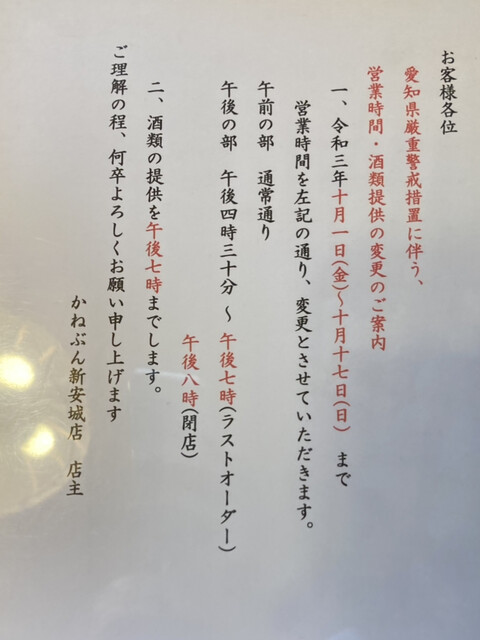 お客様各位
愛知県厳重警戒措置に伴う、
営業時間・酒類提供の変更のご案内
一、令和三年十月一日(金)～十月十七日(日)　まで
営業時間を左記の通り、変更とさせていただきます。
午前の部　通常通り
午後の部　午後四時三十分　～　午後七時(ラストオーダー)
午後八時(閉店)
二、酒類の提供を午後七時までとします。
ご理解の程、何卒よろしくお願い申し上げます
かねぶん新安城店　店主